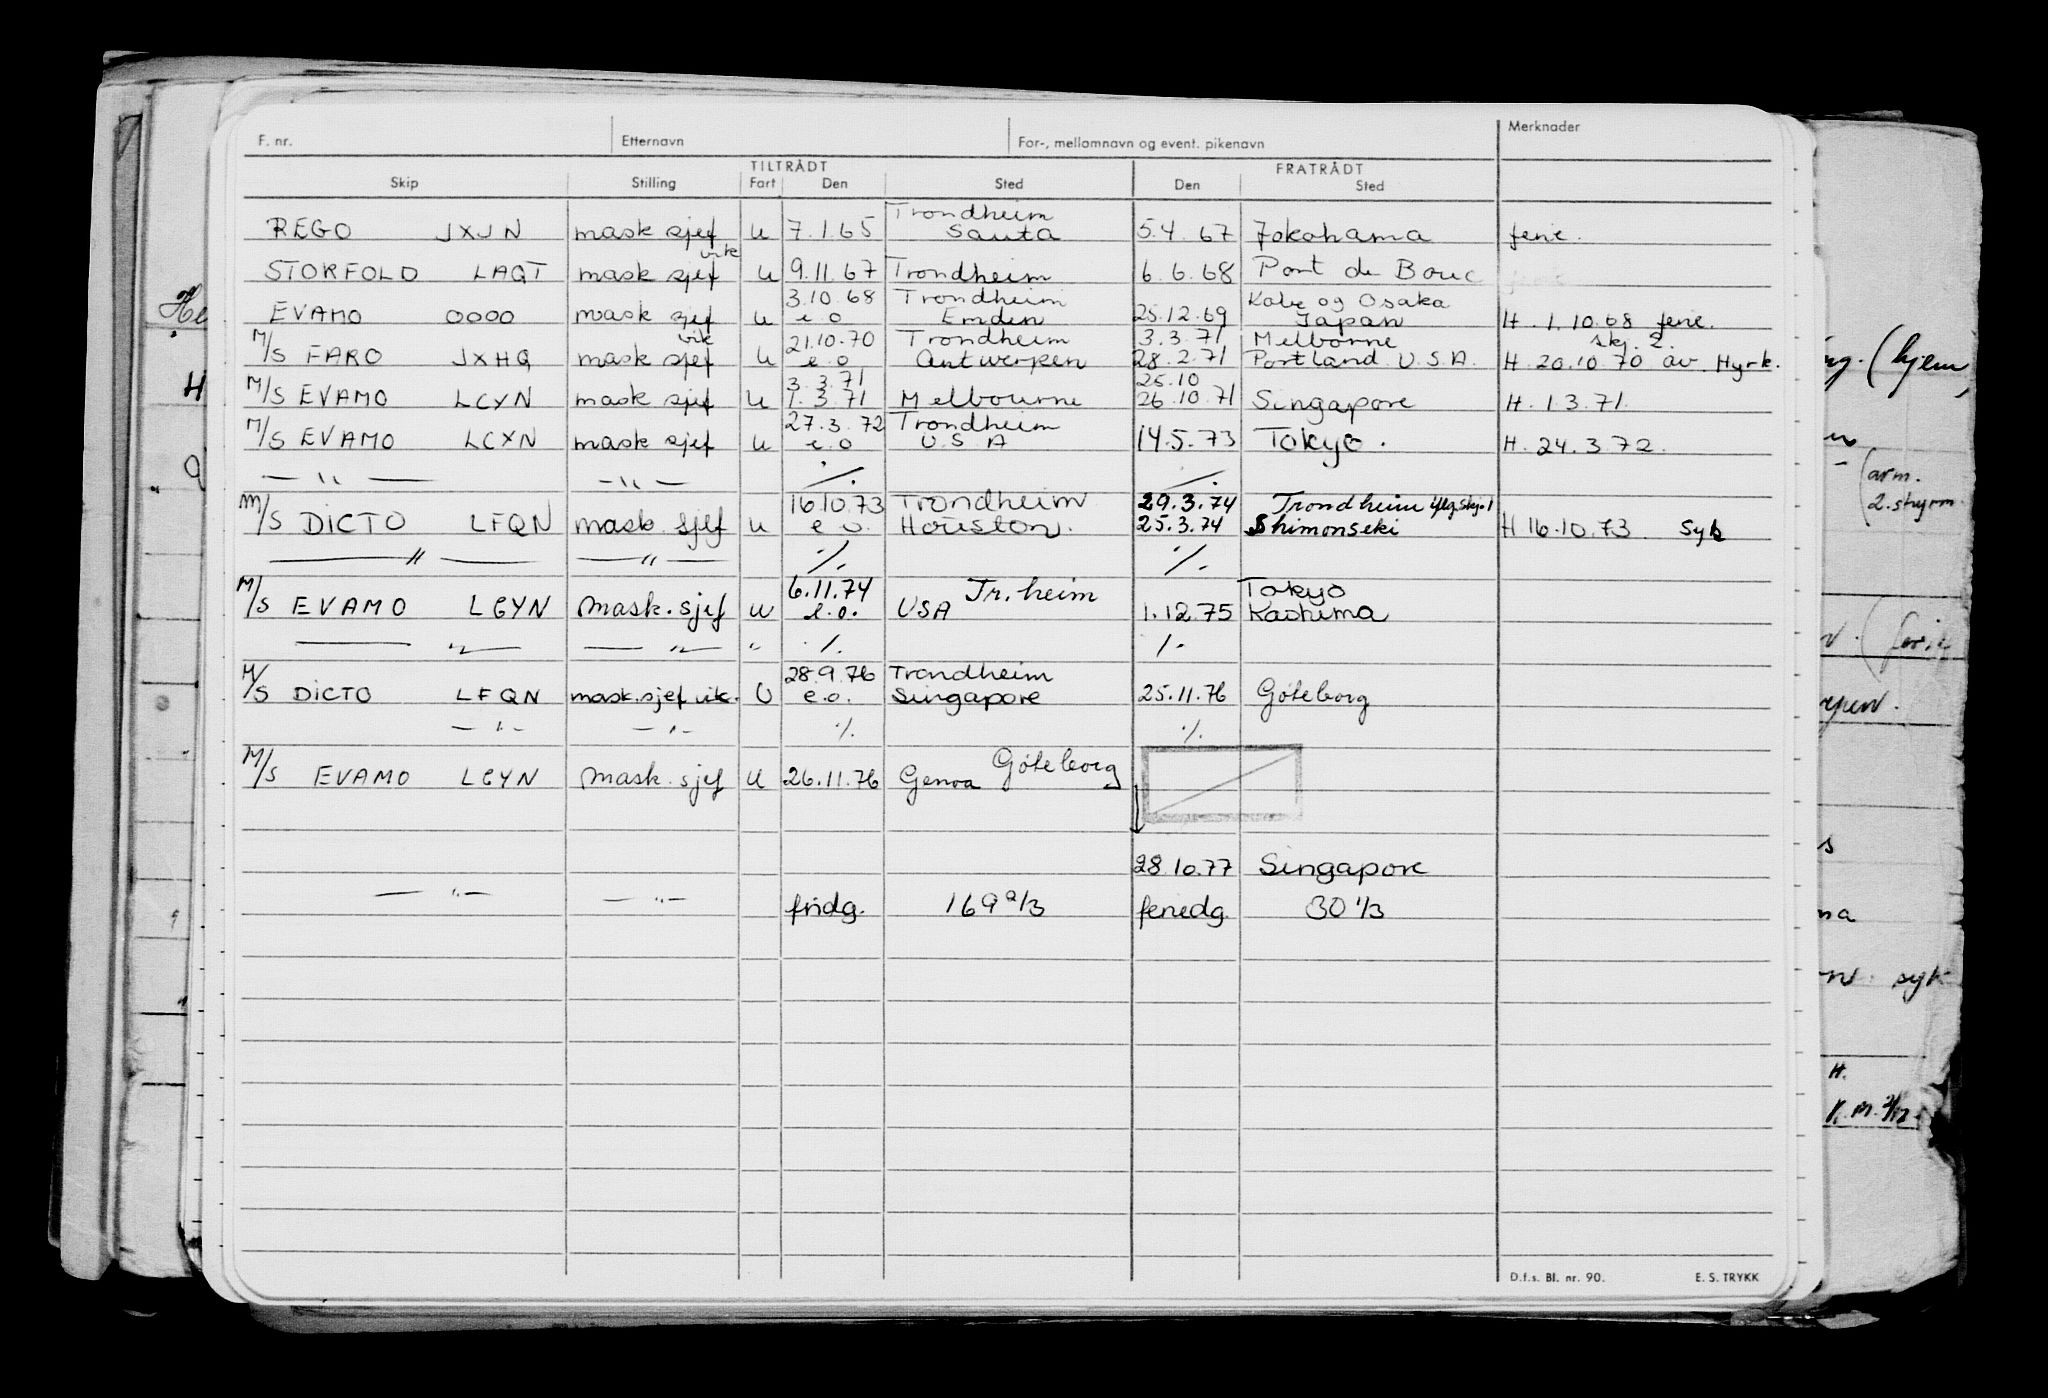 F. nr. Etternavn For-, mellomnavn og event. pikenavn Merknader
TILTRÅDT FRATRÅDT
Skip Stilling Fart Den Sted Den Sted
Trondheim
REGO JXJN mask sjef U 7.1.65 Sauta 5.4.67 Jokohama ferie.
vik
STORFOLD LAQT mask sjef U 9.11.67 Trondheim 6.6.68 Port de Bouc
3.10.68 Trondheim Kobe og Osaka
EVAMO OOOO mask sjef U e o Emden 25.12.69 Japan H. 1.10.68 ferie.
M/S vik 21.10.70 Trondheim 3.3.71 Melborne skj. 2.
FARO JXHQ mask sjef U e.o Antwerpen 28.2.71 Portland U.S.A. H. 20.10.70 av. Hyrk.
3.3.71 25.10
M/S EVAMO LCYN mask sjef U 1.3.71 Melbourne 26.10.71 Singapore H. 1.3.71.
27.3.72 Trondheim
M/S EVAMO LCXN mask sjef U e.o U.S.A 14.5.73 Tokyo. H. 24.3.72.
— " — — " — ./. ./.
16.10.73 Trondheim 29.3.74 Trondheim
M/S DICTO LFQN mask. sjef U e o. Houston. 25.3.74 Shimonseki H 16.10.73 Syk
— " — — " — ./. ./.
6.11.74 Tr.heim Tokyo
M/S EVAMO LGYN mask. sjef U e.o. USA 1.12.75 Kashima
— " — — " — " ./. ./.
28.9.76 Trondheim
M/S DICTO LFQN mask. sjef vik. U e.o. Singapore 25.11.76 Göteborg
— " — — " — ./. ./.
Göteborg
M/S EVAMO LGYN mask. sjef U 26.11.76 Genoa
28.10.77 Singapore
— " — — " — fridg. 169 2/3 feriedg. 30 1/3
D.f.s. Bl. nr. 90. E. S. TRYKK
He
H
(hjem,
(arm.
2. styrm.
syk
H.